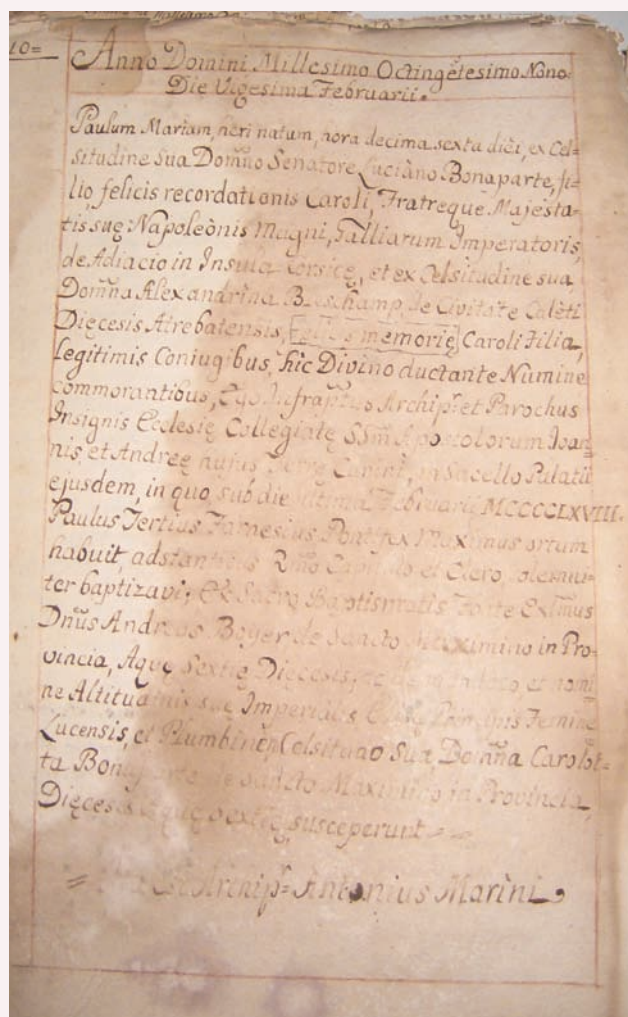 10=
Anno Domini Millesimo Octingẽtesimo Nono
Die Vigesima Februarii.
Paulum Mariam, heri natum, hora decima sexta diei, ex Cel=
situdine sua Domño Senatore Luciàno Bonaparte, fi=
lio felicis recordationis Caroli, Fratreque Majesta=
tis suę Napoleònis Magni, Galliarum Imperatoris,
de Adiacio in Insula Corsicę, et ex Celsitudine sua
Domña Alexandrina Bleschamp, de Civitate Calèti
Dięcesis Atrebatensis, felicis memorię Caroli Filia,
legitimis Coniugibus, hic Divino ductante Numine
commorantibus, Ego Infrapt̃us Archip̃r et Parochus
Insignis Ecclesię Collegiatę SSm̃ Apostolorum Joan=
nis, et Andreę hujus Terrę Canini, in Sacello Palatii
ejusdem, in quo sub die ultima Februarii MCCCCLXVIII.
Paulus Tertius Farnesius Pontifex Maximus ortum
habuit, adstantibus Rm̃o Capitulo et Clero, solemni=
ter baptizavi; Sacro Baptismatis Fonte
Dñus Andreas Boyer de Sancto Maximino in Pro=
vincia, Aquę Sextię Dięcesis, et nomi
ne Altitudinis suę Imperialis Principis Feminę
Lucensis, et Plumbinen Celsitudo Sua Domña Carolot=
ta Bonaparte de Sancto Maximino in Provincia,
Dięcesis Aquę Sextię, susceperunt
Archip̃r Antonius Marini